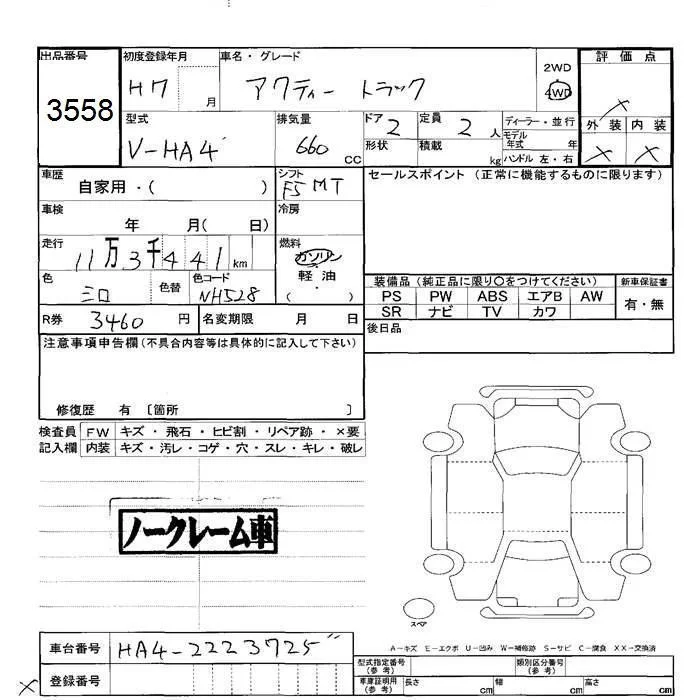 出品番号 初度登録年月 車名・グレード 2WD 評価点
3558 H7 月 アクティー トラック 4WD ×
型式 排気量 ドア 定員 ディーラー・並行 外装 内装
V-HA4 660 CC 2 2 人 モデル年式 年 × ×
形状 積載 kg ハンドル 左・右
車歴 自家用・( ) シフト F5 MT セールスポイント(正常に機能するものに限ります)
車検 年 月( 日) 冷房
走行 11万3千441km 燃料 ガソリン
軽・油
( ・ )
色 色替 色コード 装備品(純正品に限り〇をつけてください) 新車保証書
NH528 PS PW ABS エアB AW 有・無
SR ナビ TV カワ
R券 3460 円 名変期限 月 日 後日品
注意事項申告欄(不具合内容等は具体的に記入して下さい)
修復歴 有 〔箇所 〕
検査員 FW キズ・飛石・ヒビ割・リペア跡・×要
記入欄 内装 キズ・汚レ・コゲ・穴・スレ・キレ・破レ
ノークレーム車
スペア
A-キズ E-エクボ U-凹み W-補修跡 S-サビ C-腐食 XX-交換済
車台番号 HA4-2223725
登録番号
型式指定番号(参考) 類別区分番号(参考)
車庫証明用(参考) 長さ cm 幅 cm 高さ cm
×